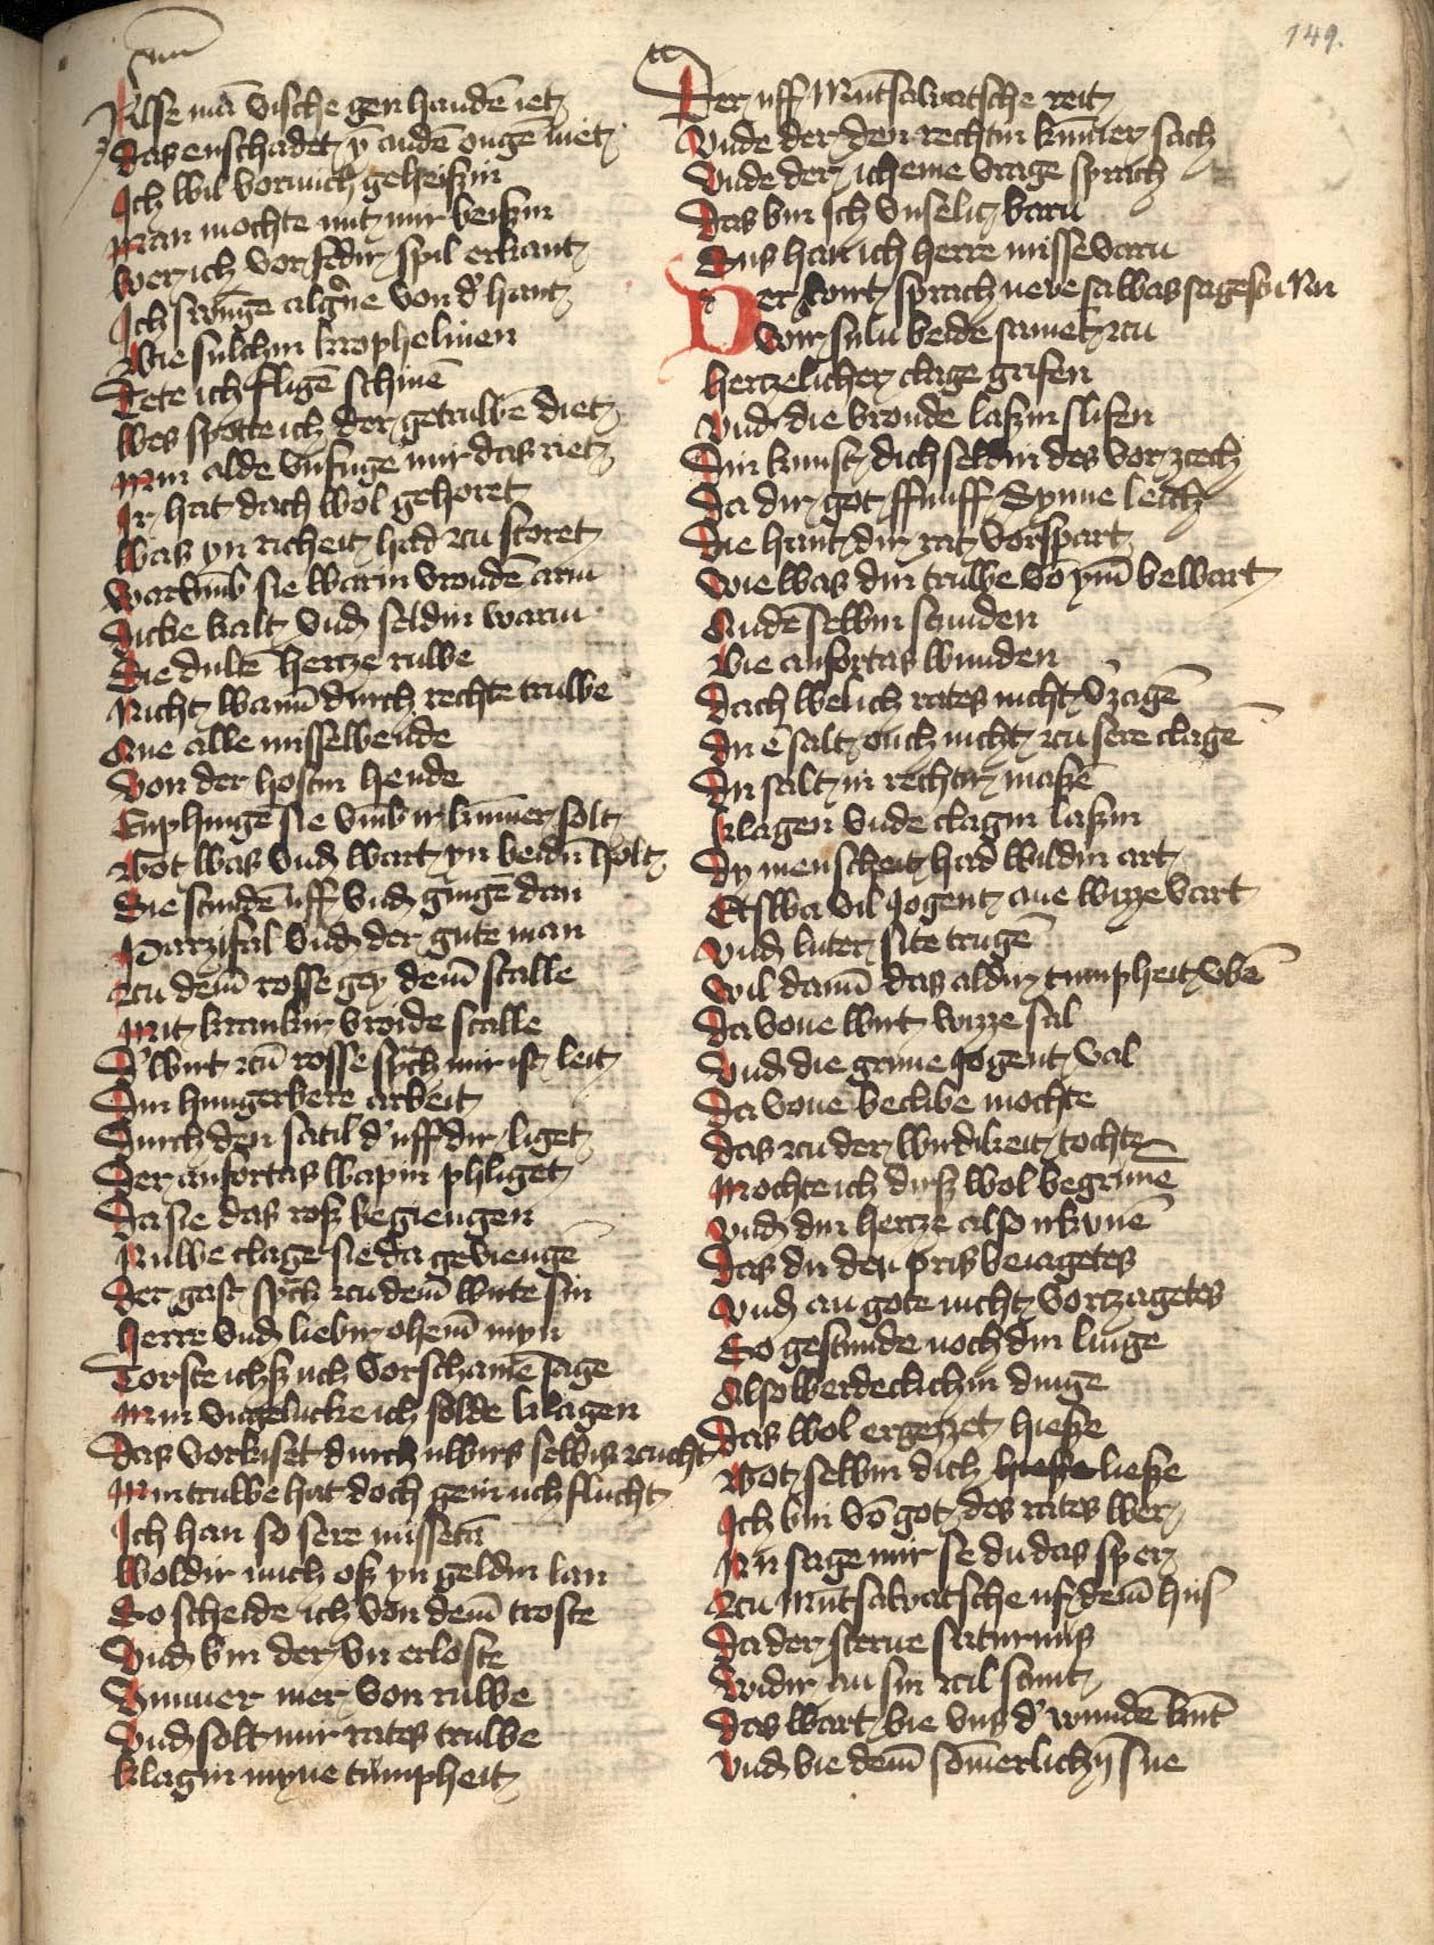 149.
Alse mā vische gen handē iet
das enschadet ȳ andē ougē niet
Ich wil vor mich geheiszin
Man mochte mit mir beiszin
wer ich vor fedir spil erkant
Ich swūge al gͤne von d' hant
Bie sulchin krophelinen
Tete ich fligē schinē
Wes spotte ich der getruwē diet
Min alde vnfuge mir das riet
Ir hat dach wol gehoret
Was yn richeit had zcu storet
warvmb sie warin vroudē arm
Dicke kalt vnd seldin warm
Sie dultē hertze ruwe
Nicht wānn durch rechte truwe
Ane alle missewende
von der hostin hende
Enphingē sie vmb ir kūmer solt
Got was vnd wart yn beidin holt
Sie stundē uff vnd gingē dan
Parzifal vnd der gute man
Zcu dem̄ rosse gey dem̄ stalle
Mit krankir vroide scalle
D' wirt zcū rosse sp̄ch mir ist leit
Din hungerbere arbeit
Durch den satil d' uff dir liget
Der anfortas wapin phliget
Da sie das rosz begiengen
Nuwe clage sie da geviengē
Der gast sp̄ch zcu dem̄ wirte sin
Herre vnd liebir ohem̄ myn
Torste ichsz uch vor schamē sage
Min vngelucke ich solde klagen
Das vorkiset durch uwirs selbis zcucht
Min truwe hat doch gein uch flucht
Ich han so sere missetā
Woldir mich osz yn geldin lan
So scheide ich von dem̄ troste
Vnd bin der vn erloste
Vmmer mer von ruwe
Vnd solt mir rates truwe
Klagin myne tumpheit
Der uff Mūtsalvatsche reit
Vnde der den rechtin kūmer sach
Vnde der icheine vrage sprach
Das bin ich vnselic barn
Sus han ich herre misse varn
Der wirt sprach neve sa was sagestu Nu
wir suln beide samet zcu
hertzelicher clage grifen
vnd die vronde laszin slifen
Din kunst dich seldin des vorzcech
Da dir got ffunff Synne lech
Die hant dir rat vorspart
Wie was din truwe vō ym̄ bewart
An dē selbin stunden
Bie anfortas wunden
Dach wel ich rates nicht v'zagē
Dn ē salt ouch nicht zcu sere clagē
Dn salt in rechtir maszē
klagen vnde clagin laszin
Dy menscheit had wildin art
Etswa vil jogent ane wizze vart
vnd luter site trugē
Wil dann̄ das aldir tumpheit vbē
Da vone wirt wizze sal
Vnd die grune jogent val
Da vone beclibe mochte
Das zcu der wirdikeit tochte
Mochte ich dirsz wol begrunē
vnd din hertze also irkunē
Das du den pris beiagetes
vnd an gote nicht vortzagetes
So gestunde noch din linge
Also werdeclichin dinge
Das wol ergetzet hiesze
Got selbin dich liesze
Ich bin vō got des rates wer
Nu sage mir se du das sper
Zcu Mūtsalvatsche uf dem̄ hus
Da der sterne saturnus
Widir an sin zcil stunt
Das wart bie vns d' wundē kūt
Vnd bie dem̄ som̄erlichin sne